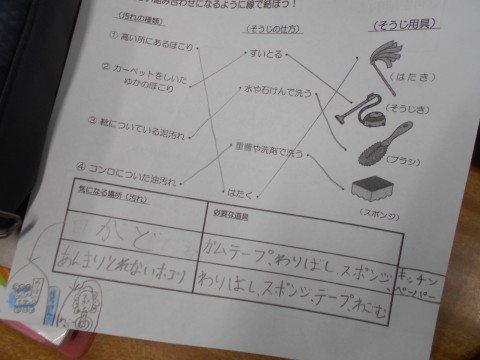 い組み合わせになるように線で結ぼう！
(汚れの種類)
(そうじの仕方)
(そうじ用具)
① 高い所にあるほこり
すいとる
(はたき)
② カーペットをしいた
ゆかのほこり
水や石けんで洗う
(そうじき)
③ 靴についている泥汚れ
重曹や洗剤で洗う
(ブラシ)
④ コンロについた油汚れ
はたく
(スポンジ)
気になる場所(汚れ)
必要な道具
かど
ガムテープ、わりばし、スポンジ、キッチン
ペーパー
あんまりとれないホコリ
わりばし、スポンジ、テープ、わごむ